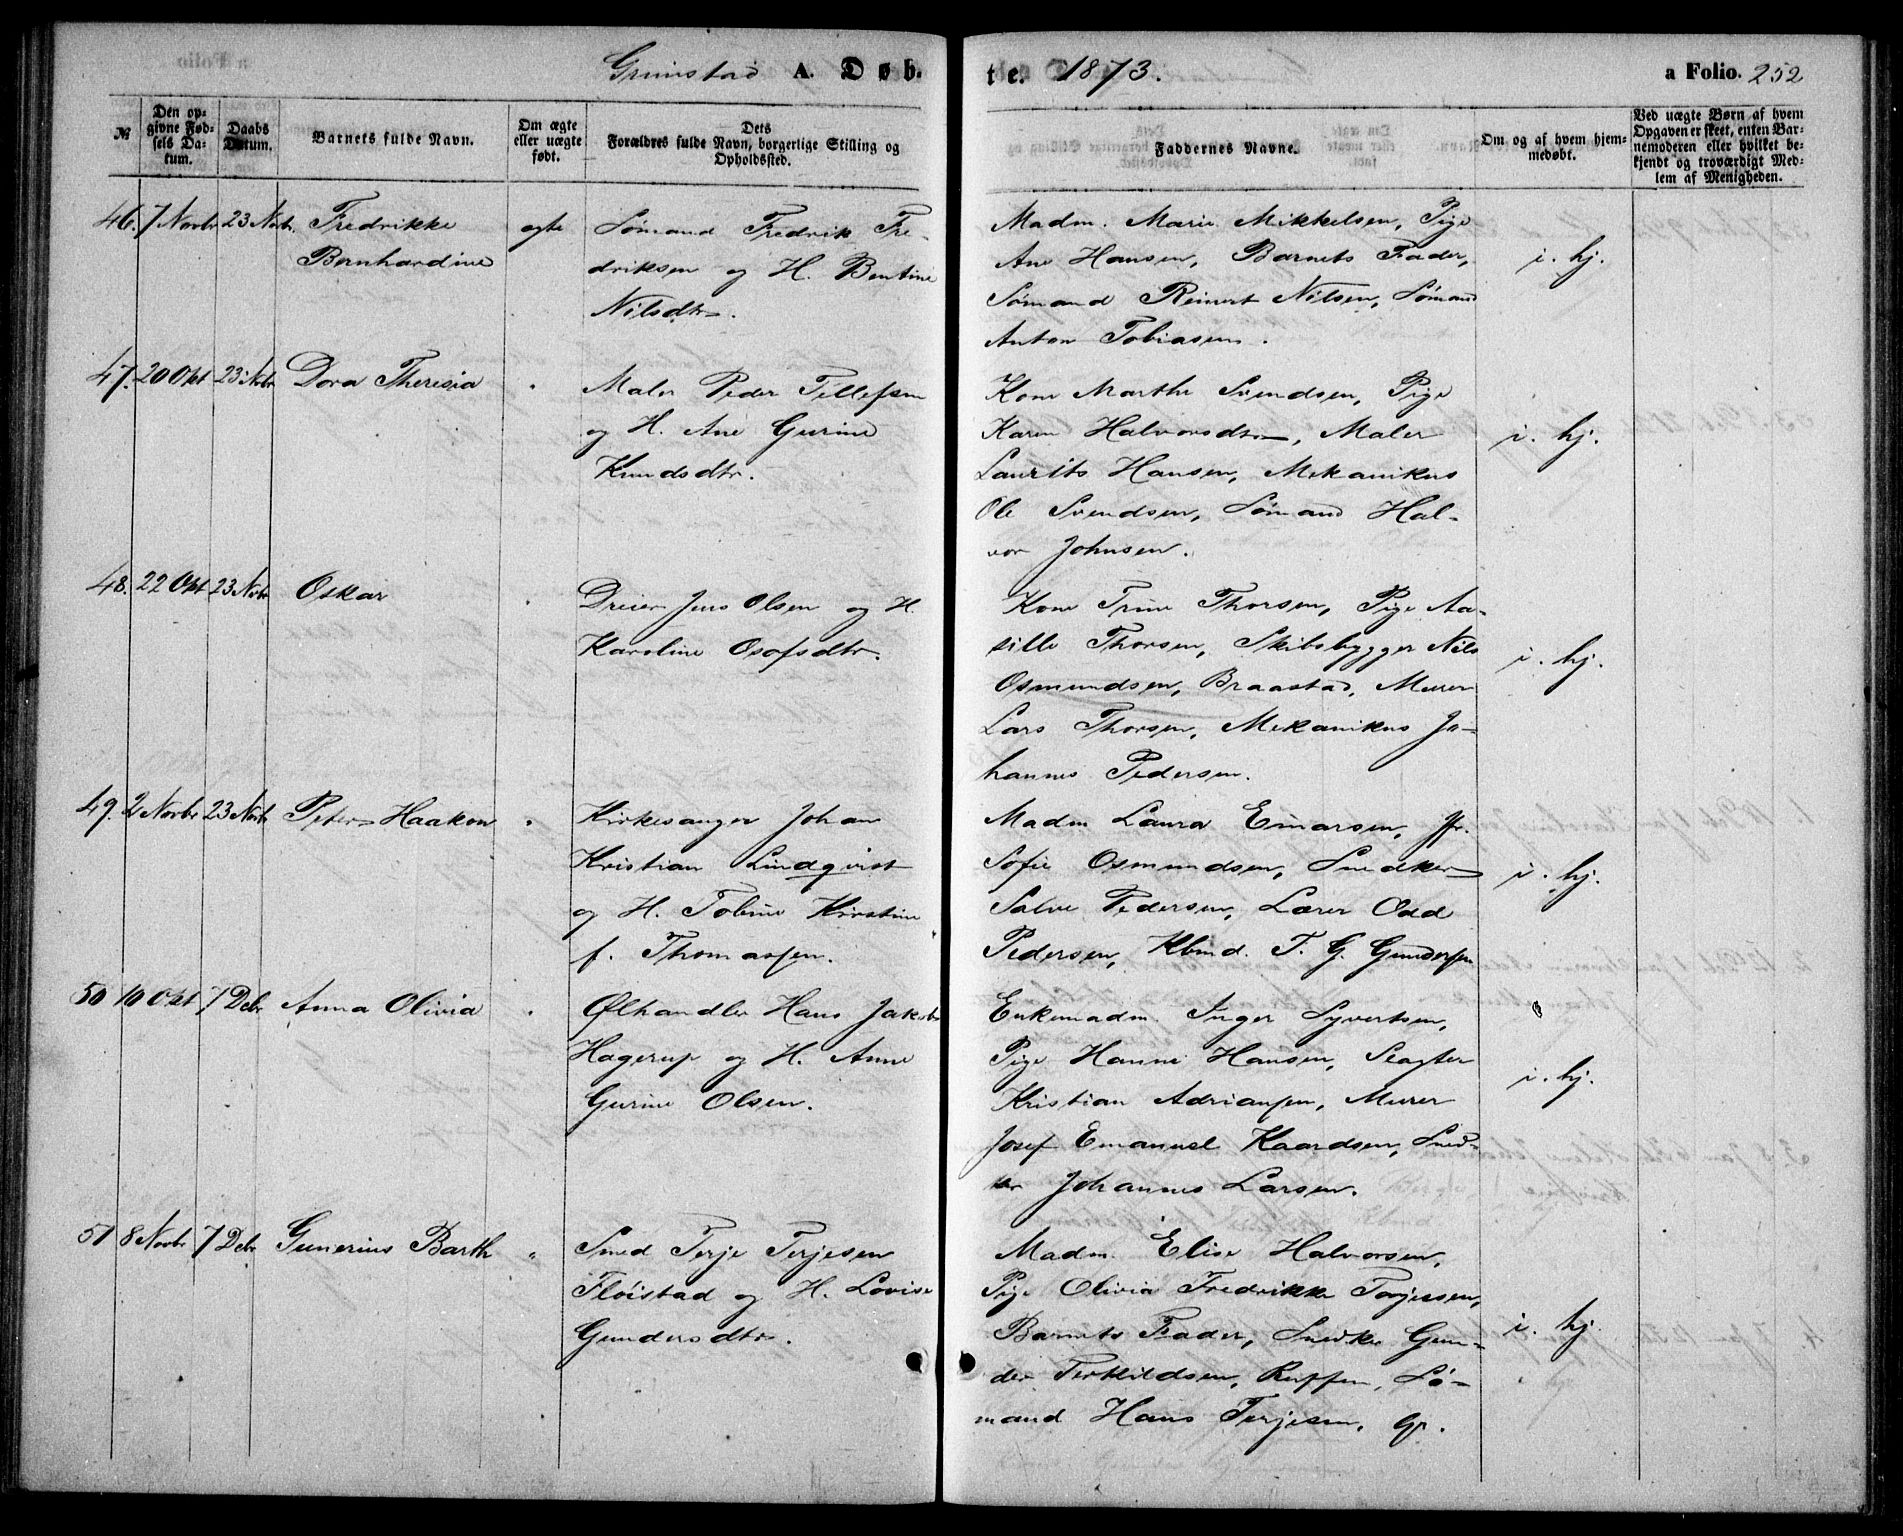 Grimstad A. Døb-
te. 1873.
a Folio. 252
№
Den op-
givne Fød-
sels Da-
tum.
Daabs
Datum.
Barnets fulde Navn.
Om ægte
eller uægte
født.
Dets
Forældres fulde Navn, borgerlige Stilling og
Opholdssted.
Faddernes Navne.
Om og af hvem hjem-
medøbt.
Ved uægte Børn af hvem
Opgaven er skeet, enten Bar-
nemoderen eller hvilket be-
kjendt og troværdigt Med-
lem af Menigheden.
46. 7 Novbr 23 Novbr.
Fredrikke
Bernhardine
ægte
Sømand Fredrik Fre-
driksen og H. Bentine
Nilsdtr.
Madm. Marie Mikkelsen, Pige
Ane Hansen, Barnets Fader,
Sømand Reinert Nilsen, Sømand
Anton Tobiasen.
i. hj.
47. 20 Okt 23 Novbr
Dora Theresia
"
Maler Peder Tellefsen
og H. Ane Gurine
Knudsdtr.
Kone Marthe Svendsen, Pige
Karen Halvorsdtr, Maler
Laurits Hansen, Mekanikus
Ole Svendsen, Sømand Hal-
vor Johnsen.
i. hj.
48. 22 Okt 23 Novbr
Oskar
"
Dreier Jens Olsen og H.
Karoline Osofsdtr.
Kone Trine Thorsen, Pige Aa-
sille Thorsen, Skibsbygger Nils
Osmundsen, Braastad, Murer
Lars Thorsen, Mekanikus Jo-
hannes Pedersen.
i. hj.
49. 2 Novbr 23 Novbr
Peter Haakon
"
Kirkesanger Johan
Kristian Lindqvist
og H. Tobine Kirstine
f. Thomassen.
Madm Laura Einarsen, Jfr.
Sofie Osmundsen, Snedker
Salve Pedersen, Lærer Odd
Pedersen, Kbmd. T. G. Gundersen
i. hj.
50 10 Okt 7 Debr
Anna Olivia
"
Ølhandler Hans Jakob
Hagerup og H. Anne
Gurine Olsen.
Enkemadm. Inger Syvertsen,
Pige Hanne Hansen, Slagter
Kristian Adriansen, Murer
Josef Emanuel Kaardsen, Sned-
ker Johannes Larsen.
i. hj.
51 8 Novbr 7 Debr
Gunerius Barth
"
Smed Terje Terjesen
Fløistad og H. Lovise
Gundersdtr.
Madm. Elise Halvorsen,
Pige Olivia Fredrikke Torjessen,
Barnets Fader, Snedker Gun-
der Terkildsen, Ruppen, Sø-
mand Hans Terjesen, Gr.
i. hj.